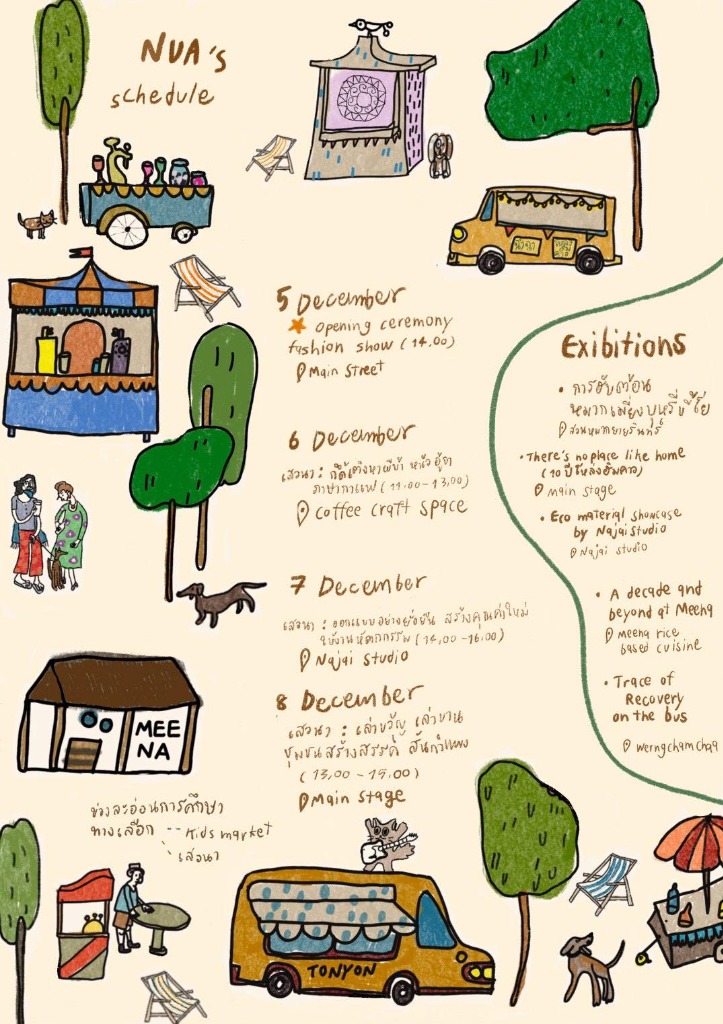 NUA's
schedule
5 December
opening ceremony
fashion show (14.00)
Main Street
6 December
เสวนา :
ภาษากาแฟ (11:00-13,00)
coffee craft space
7 December
เสวนา : ออกแบบอย่างยั่งยืน สร้างคุณค่าใหม่
ให้งานหัตถกรรม (14,00-16:00)
Najai studio
8 December
เสวนา : เล่าขวัญ เล่าขาน
ชุมชนสร้างสรรค์ สันกำแพง
(13,00-15,00)
Main stage
Exibitions
There's no place like home
main stage
Eco material showcase
by Najai Studio
Najai studio
A decade and
beyond at Meena
meena rice
based cuisine
Trace of
Recovery
on the bus
werngchamchaa
MEE
NA
ข่วงละอ่อนการศึกษา
ทางเลือก -- Kids market
เสวนา
TONYON